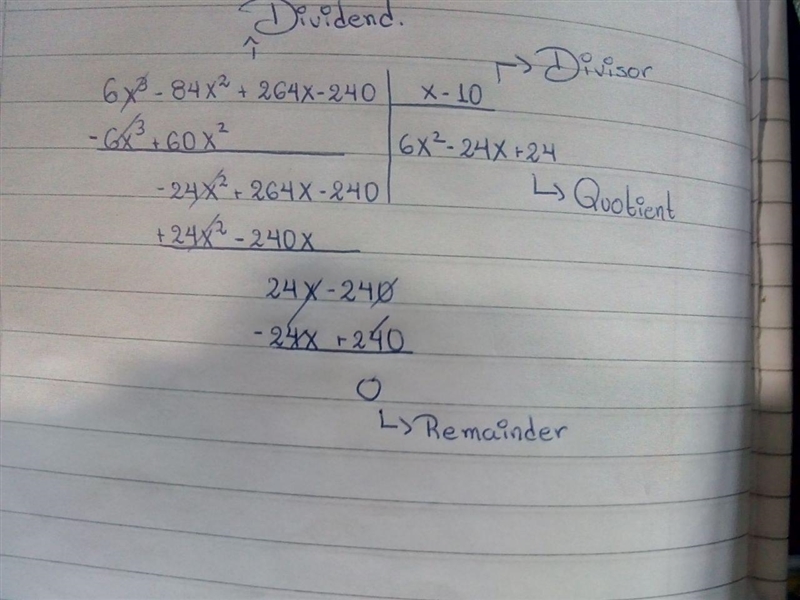 Dividend.
↑
6x³ - 84x² + 264x - 240 | x - 10 → Divisor
- 6x³ + 60x² 6x² - 24x + 24
- 24x² + 264x - 240 ↳ Quotient
+ 24x² - 240x
24x - 240
- 24x + 240
0
↳ Remainder